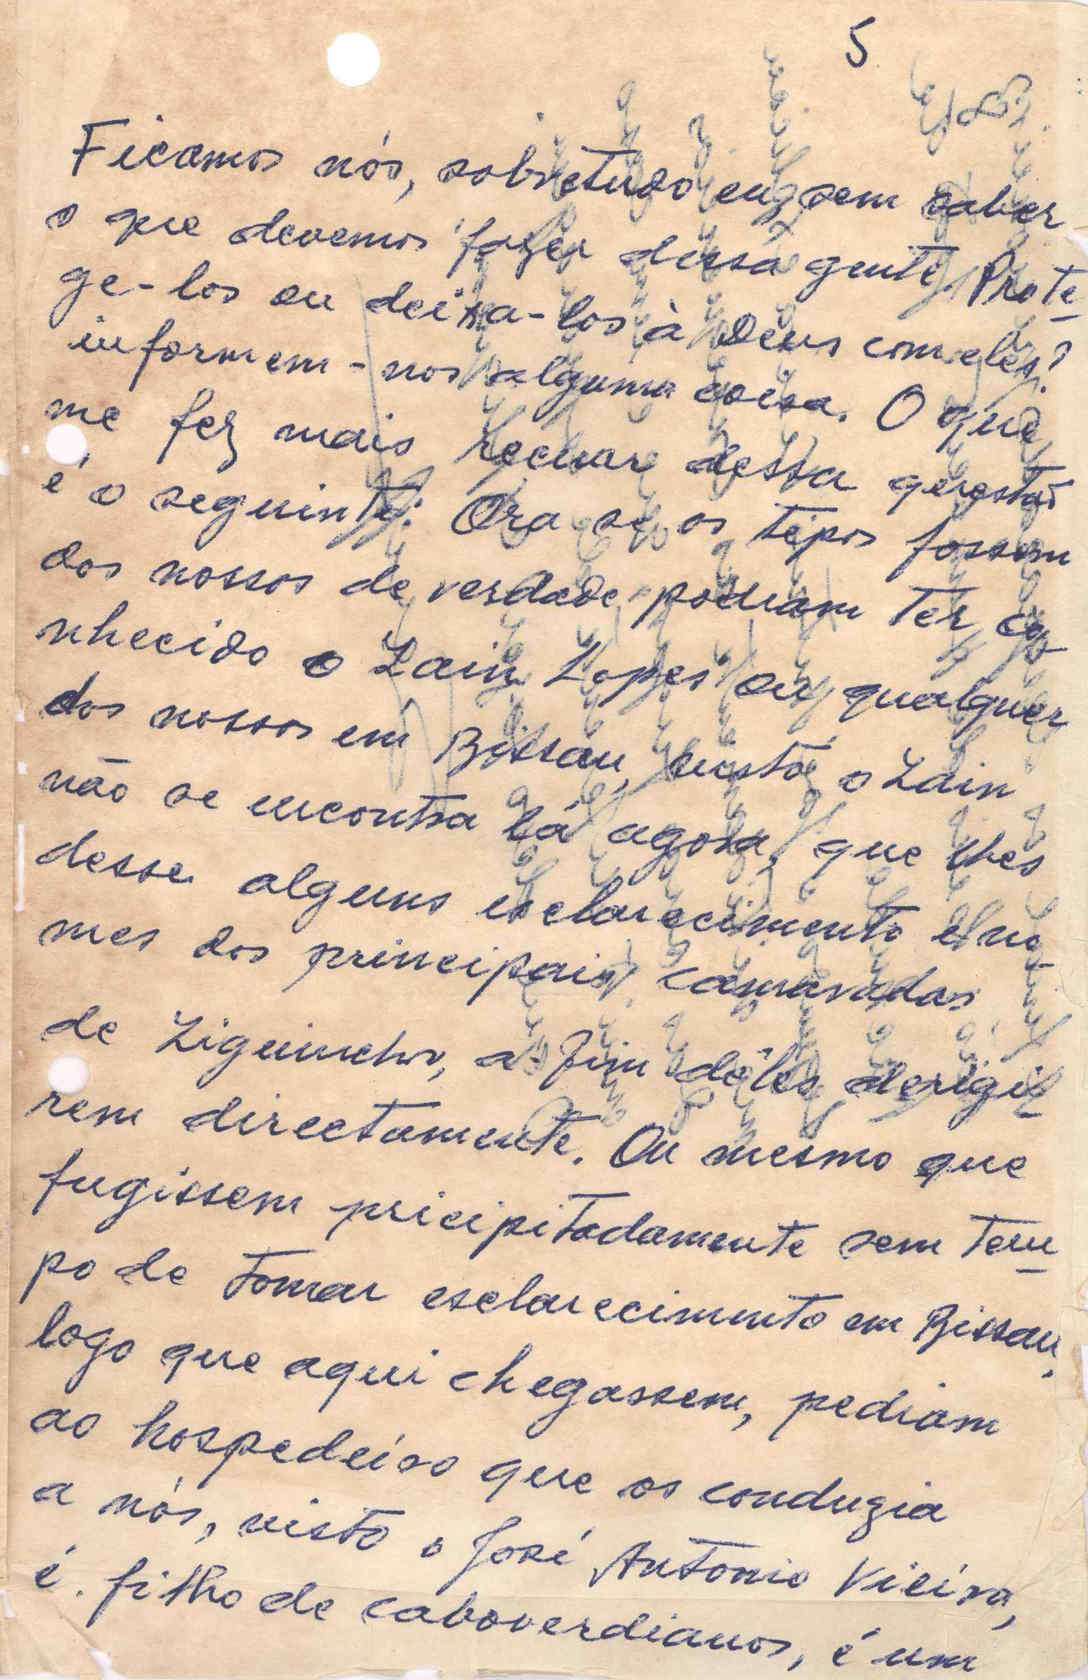 5
Ficamos nós, sobretudo eu, sem saber
o que devemos fazer dessa gente. Prote-
ge-los ou deixa-los à Deus com eles?
informem-nos alguma coisa. O que
me fez mais recuar desta questão
é o seguinte: Ora se os tipos fossem
dos nossos de verdade podiam ter co-
nhecido o Lain Lopes ou qualquer
dos nossos em Bissau, visto o Lain
não se encontra lá agora, que lhes
desse alguns esclarecimento e no-
mes dos principais camaradas
de Ziguinchor, a fim dêles derigi-
rem directamente. Ou mesmo que
fugissem pricipitadamente sem tem-
po de tomar esclarecimento em Bissau,
logo que aqui chegassem, pediam
ao hospedeiro que os conduzia
a nós, visto o José Antonio Vieira,
é filho de caboverdianos, é um